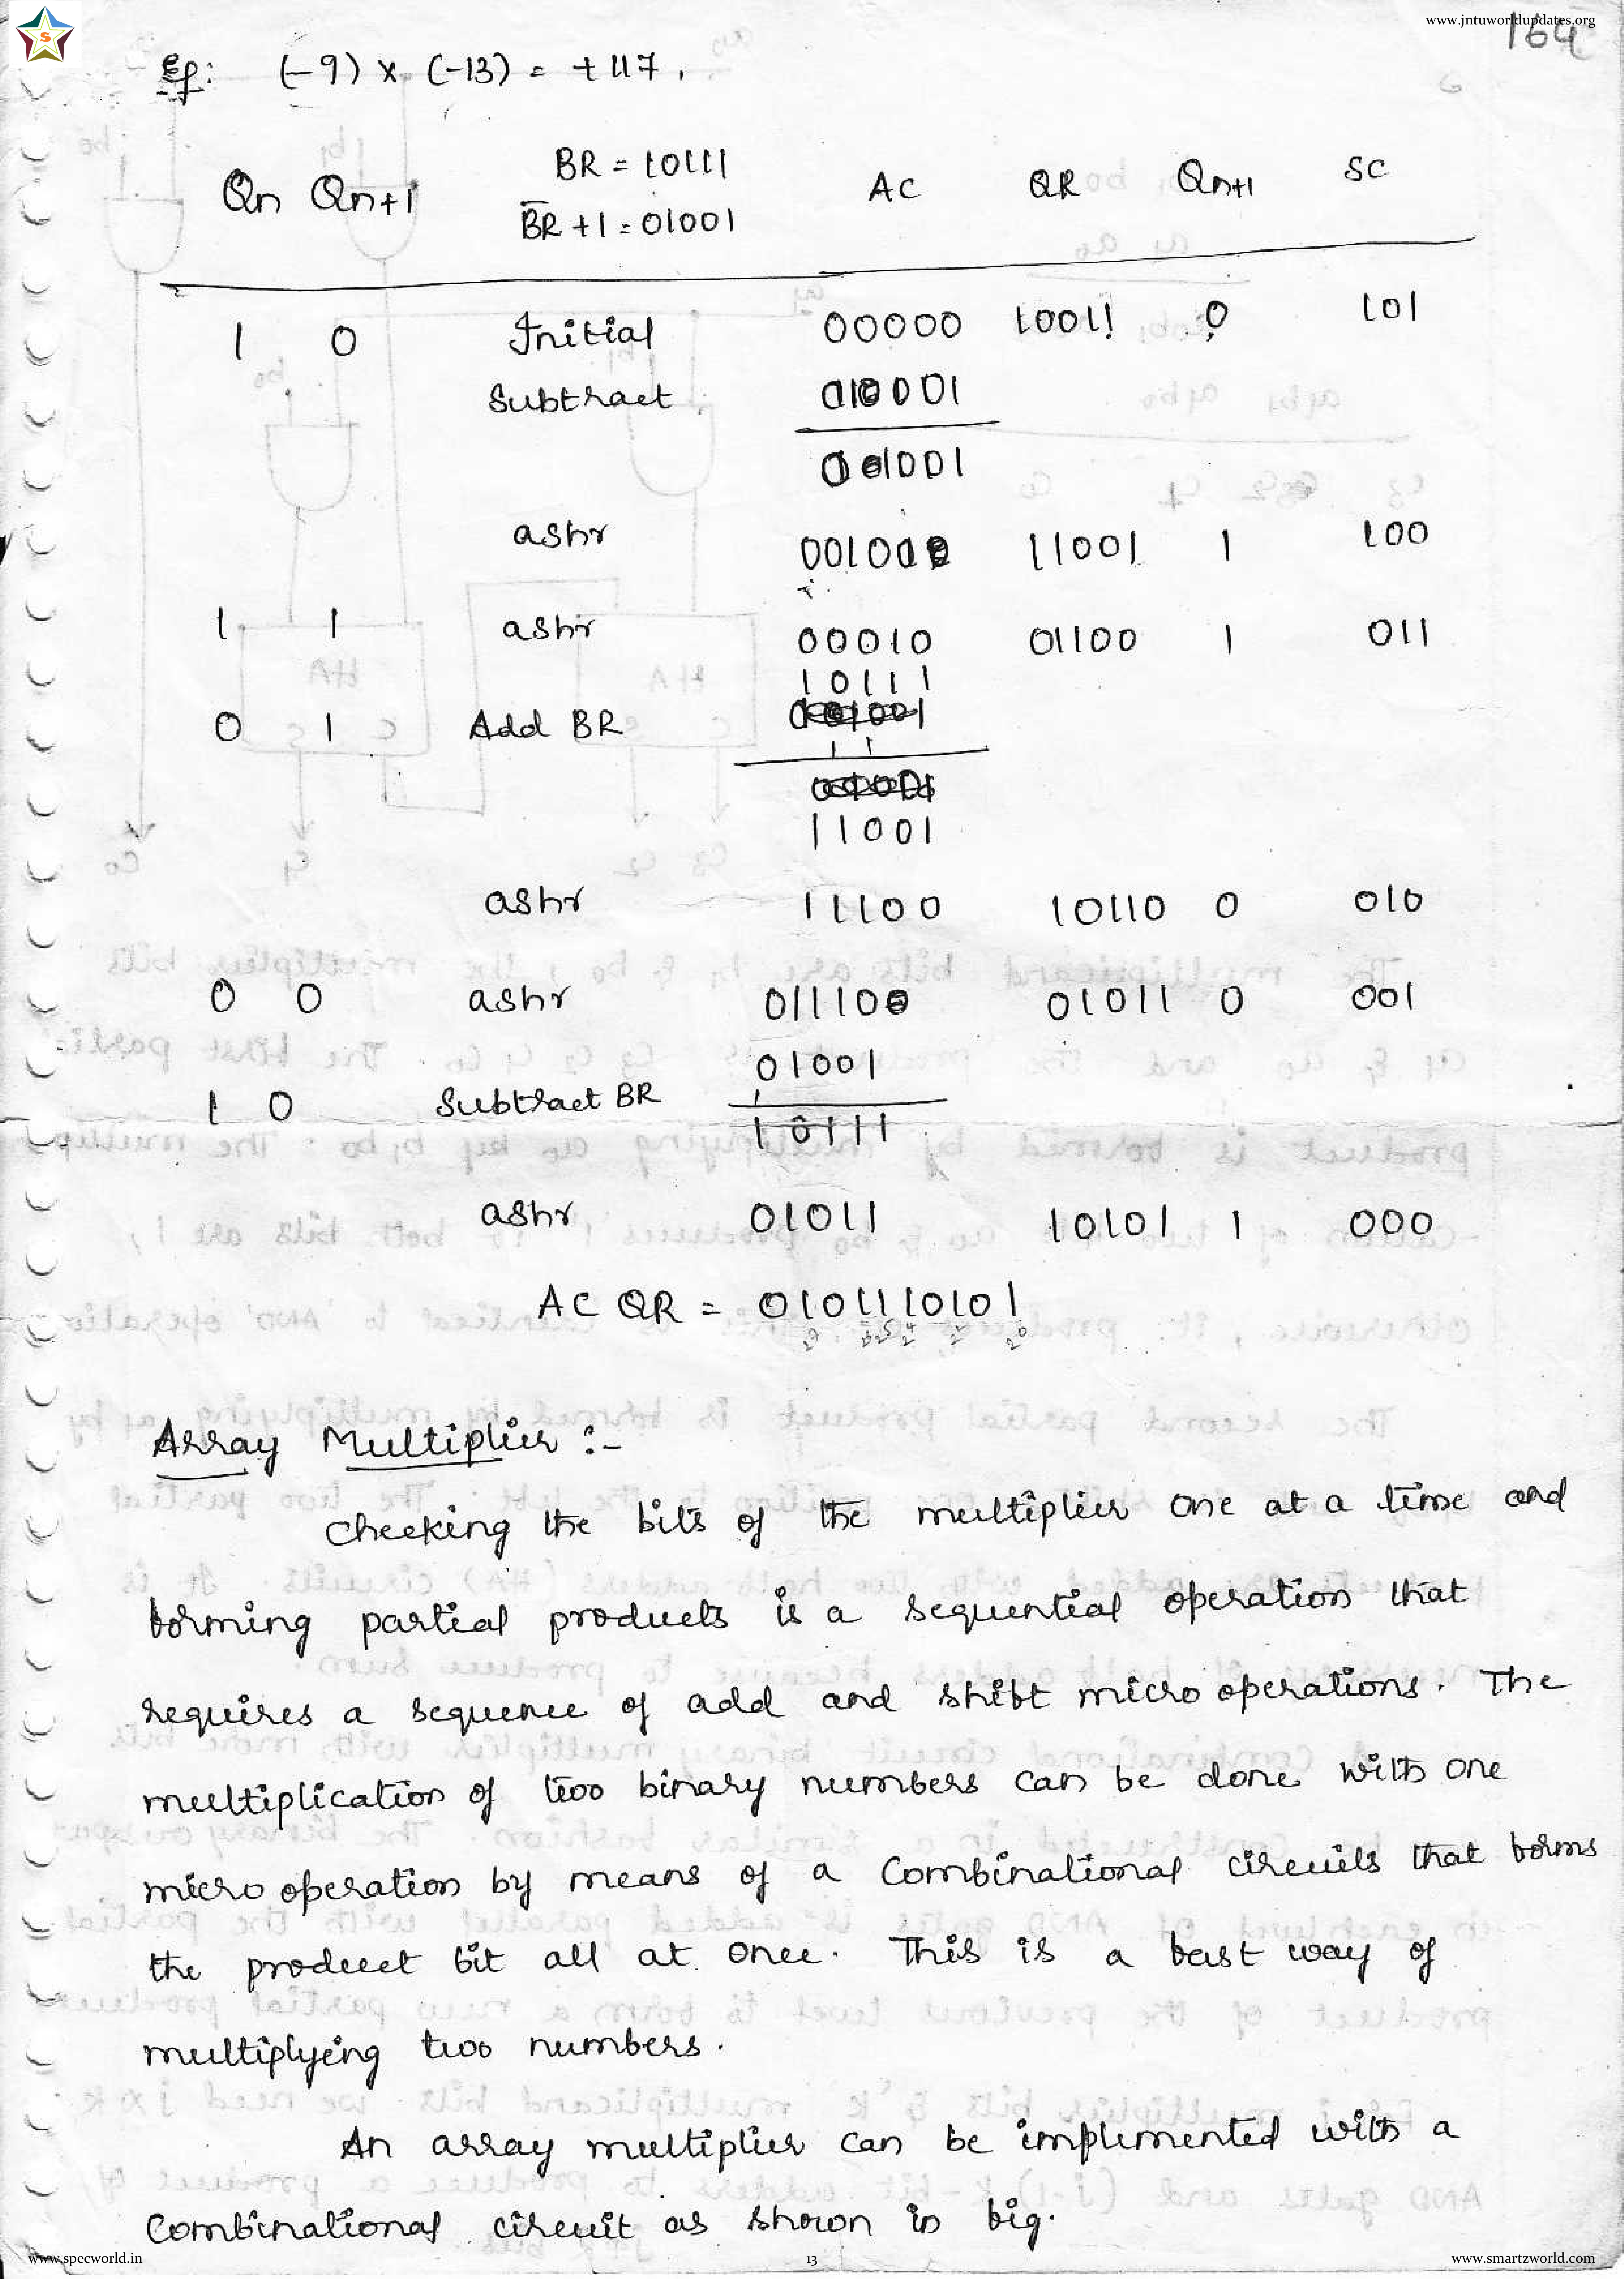 www.jntuworldupdates.org
164
Eg: (-9) x (-13) = +117.
BR = 10111
Qn Qn+1 AC QR Qn+1 SC
B̅R̅ +1 = 01001
1 0 Initial 00000 10011 0 101
Subtract 01001
01001
ashr 00100 11001 1 100
1 1 ashr 00010 01100 1 011
10111
0 1 Add BR
11001
ashr 11100 10110 0 010
0 0 ashr 01110 01011 0 001
01001
1 0 Subtract BR
10111
ashr 01011 10101 1 000
AC QR = 0101110101
Array Multiplier :-
Checking the bits of the multiplier one at a time and
forming partial products is a sequential operation that
requires a sequence of add and shift micro operations. The
multiplication of two binary numbers can be done with one
micro operation by means of a Combinational circuits that forms
the product bit all at once. This is a fast way of
multiplying two numbers.
An array multiplier can be implemented with a
Combinational circuit as shown in fig.
www.specworld.in 13 www.smartzworld.com